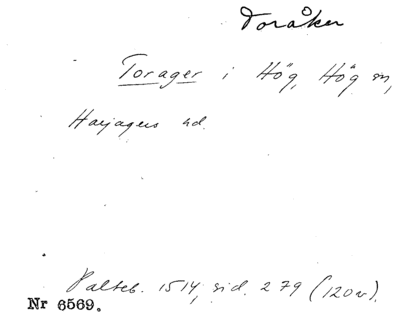 Toråker
Torager i Hög, Hög sn,
Harjagers hd.
Palteb. 1514, sid. 279 (120v).
Nr 6569.